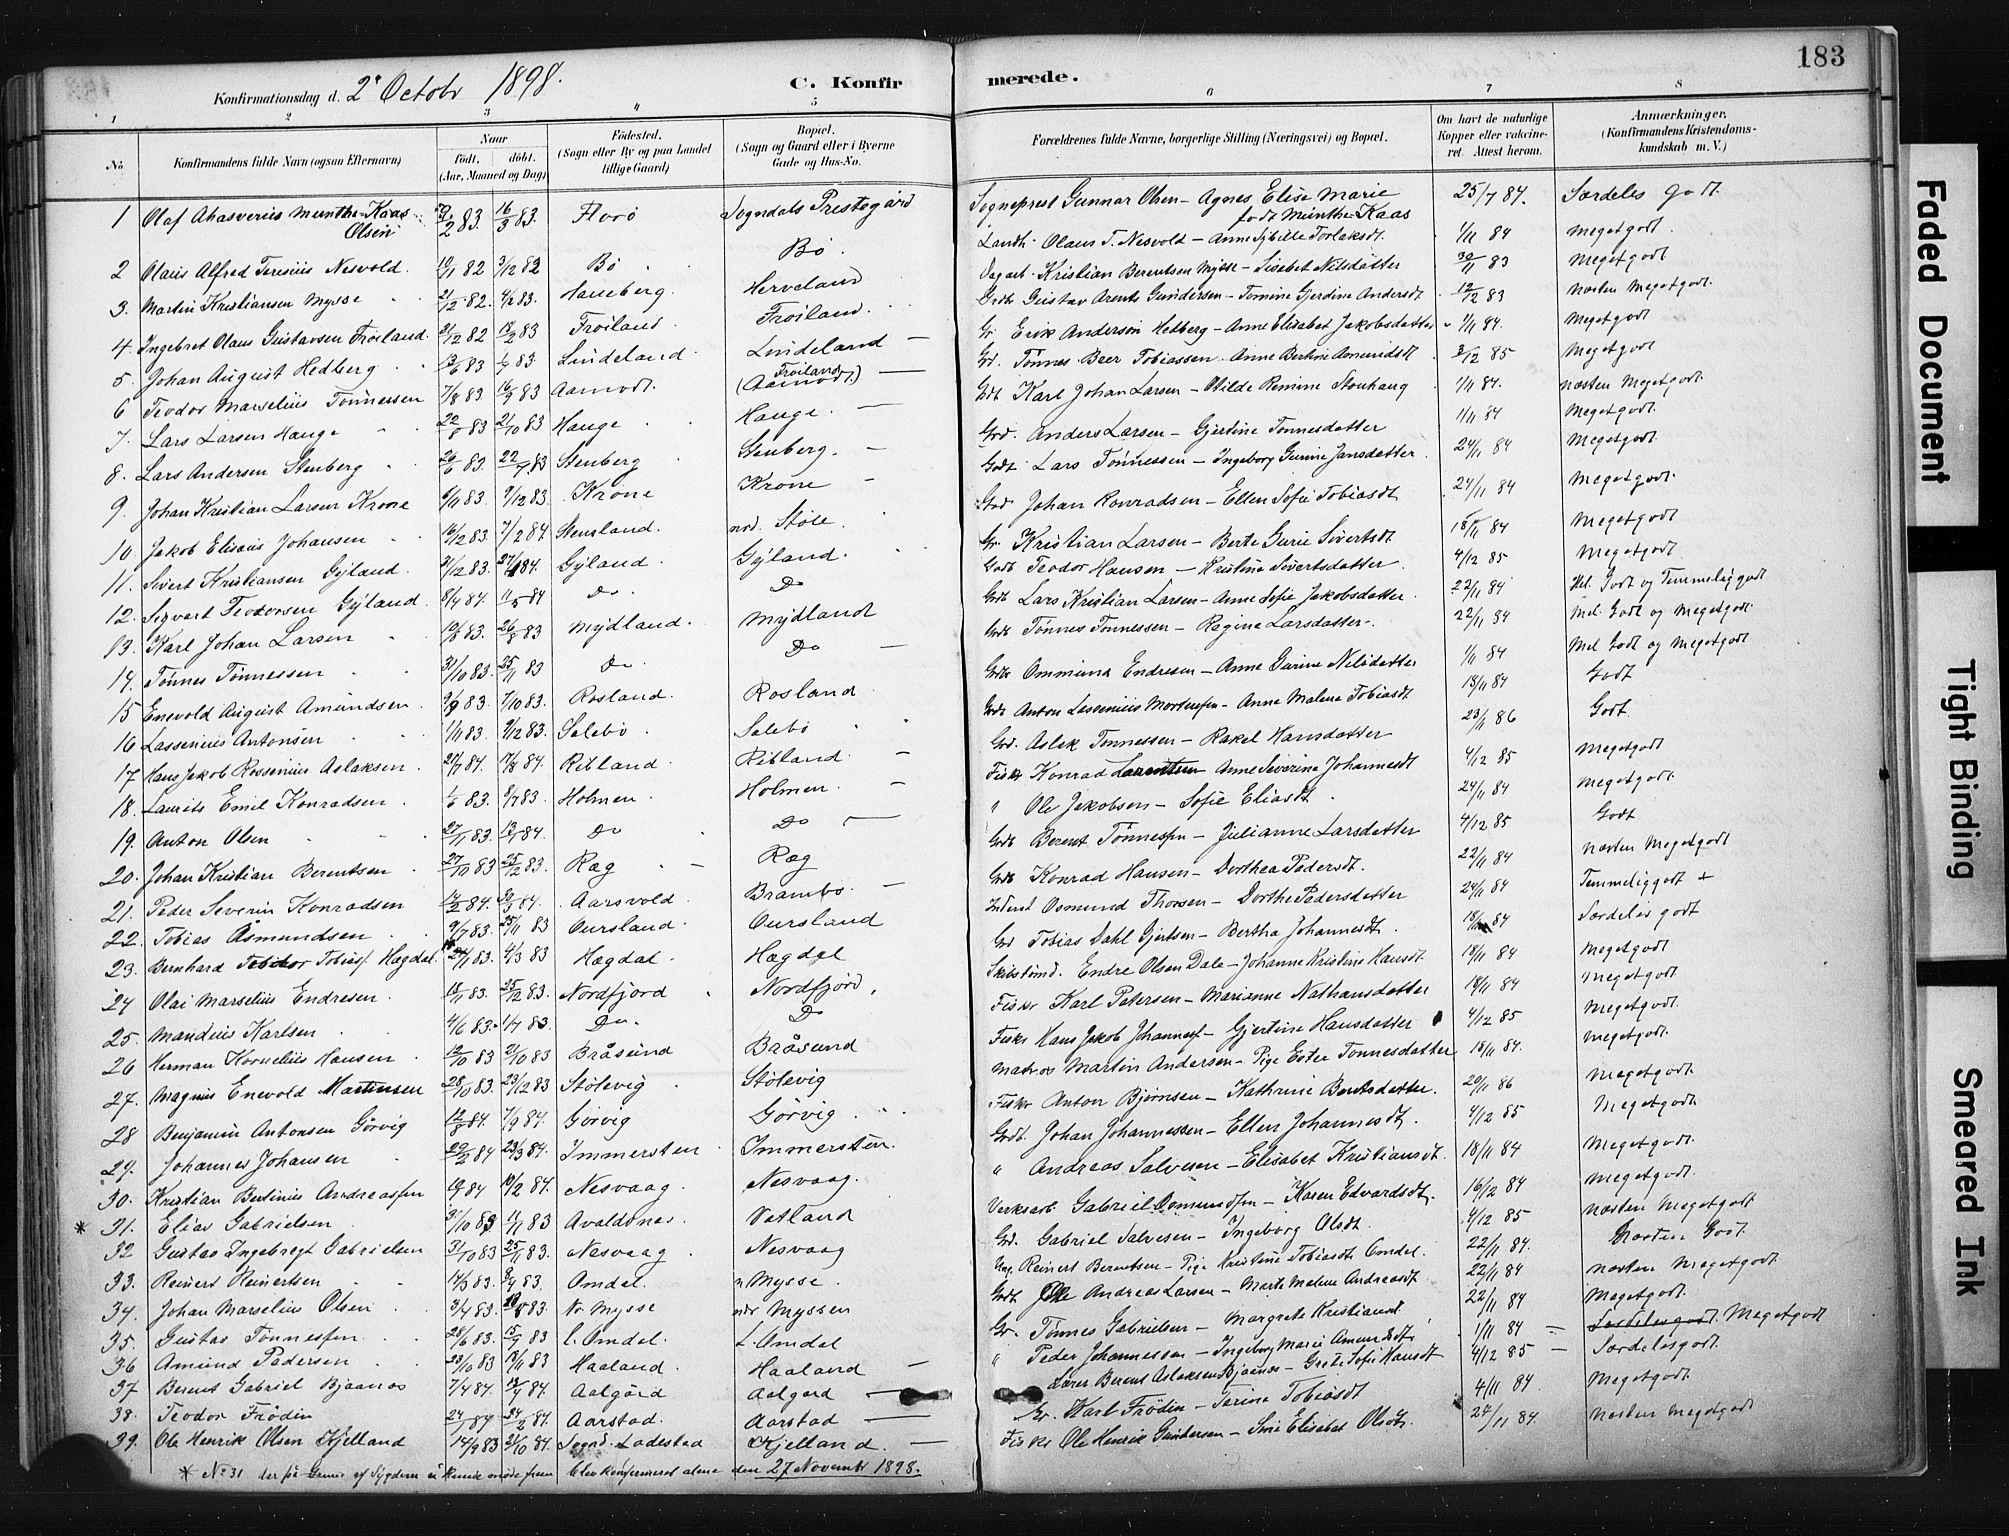 183
C. Konfirmerede.
Konfirmationsdag d. 2' Octobr 1898.
1 2 3 4 5 6 7 8
No. Konfirmandens fulde Navn (ogsaa Efternavn)
Naar
født. døbt.
(Aar, Maaned og Dag)
Fødested.
(Sogn eller By og paa Landet
tillige Gaard)
Bopæl.
(Sogn og Gaard eller i Byerne
Gade og Hus-No.
Forældrenes fulde Navne, borgerlige Stilling (Næringsvei) og Bopæl.
Om havt de naturlige
Kopper eller vaccineret. Attest herom.
Anmærkninger,
(Konfirmandens Kristendomskundskab m. V.)
1 Olaf Ahasverius Munthe-Kaas Olsen 16/3 83. Florø Sogndals Prestegård Sogneprest Gunnar Olsen - Agnes Elise Marie født Munthe-Kaas 25/7 84. Særdeles godt.
2 Olaus Alfred Teresius Nesvold. 10/11 82 3/12 82 Bø Bø. Landh. Olaus T. Nesvold - Anne Sybille Torlaksdt. 1/11 84 Megetgodt.
3. Martin Kristiansen Mysse 21/12 82. 4/2 83. Haneberg. Herveland Dagarb. Kristian Berentsen Mysse - Lisabet Nilsdatter 30/11 83 Megetgodt
4. Ingebret Olaus Gustavsen Frøiland. 21/12 82 18/2 83 Frøiland. Frøiland. Grdb Gustav Arents Gundersen - Tomine Gjerdine Andersdt 12/12 83 næsten Megetgodt.
5. Johan August Hedberg 83 83. Lindeland. Lindeland Gr Erik Anderson Hedberg - Anne Elisabet Jakobsdatter 1/11 84. Megetgodt
6 Teodor Marselius Tønnessen 7/8 83. 16/9 83 Aamodt. Frøiland (Aamodt.) Grd. Tønnes Brer Tobiassen. Anne Bertine Amundsdt 3/12 85 Megetgodt
7. Lars Larsen Hauge 22/8 83 21/10 83 Hauge Hauge. Grdb Karl Johan Larsen - Otilde Remine Stenhaug 1/11 84. næsten Megetgodt.
8. Lars Andersen Stenberg 83. 83 Stenberg Stenberg. Grd. Anders Larsen - Gjertine Tønnesdatter 1/11 84 Megetgodt.
9. Johan Kristian Larsen Krone 6/11 83. 9/12 83. Krone Krone Grdb Lars Tønnessen - Ingeborg Gurine Jansdatter. 24/11 84 Megetgodt.
10. Jakob Elisæus Johansen 16/12 83. 7/2 84 Stensland. nrd. Støle Grd Johan Konradsen - Ellen Sofie Tobiasdt 24/11 84 Megetgodt.
11. Sivert Kristiansen Gyland. 2/12 83. 84. Gyland. Gyland. Gr. Kristian Larsen - Berte Gurie Sivertsdt 18/11 84 Megetgodt
12. Sigvart Teodorsen Gyland. 8/4 84. 11/5 84 Do. Do Grdb Teodor Hansen - Kristine Sivertsdatter. 4/12 85 Megetgodt.
13. Karl Johan Larsen 83. 26/8 83 Mydland. Mydland Grdb Lars Kristian Larsen - Anne Sofie Jakobsdatter. 22/11 84 Mel. Godt og Temmeliggodt
14. Tønnes Tønnessen 31/10 83. 25/11 83 Do. Do Grdb Tønnes Tønnessen - Ragine Larsdatter. 22/11 84 Mel. Godt og Megetgodt.
15 Enevold August Amundsen. 83 7/10 83. Rosland. Rosland Grdb Ommund Endresen - Anne Gurine Nilsdatter 1/11 84 Mel Godt og Megetgodt
16 Lassenius Antonsen 1/11 83. 9/12 83. Selebø. Selebø Grdb Anton Lassenius Mortensen - Anne Malene Tobiasdt 18/11 84 Godt
17 Hans Jakob Rossenius Aslaksen. 21/7 84. 17/8 84. Ritland. Ritland. Grd. Aslak Tønnessen - Rakel Hansdatter 23/11 86 Godt
18. Laurits Emil Konradsen 83. 8/7 83. Holmen. Holmen. Fisk. Konrad Larentsen Anne Severine Johannesdt 4/12 85 Megetgodt
19. Anton Olsen 27/11 83. 13/1 84. Do Do " Ole Jakobsen - Sofie Eliasdt. 24/11 84 Megetgodt.
20. Johan Kristian Berentsen 27/10 83 25/12 83. Ræg Ræg Grdb Berent Tønnessen - Julianne Larsdatter 4/12 85 Godt
21. Peder Severin Konradsen 84. 84. Aarsvold. Brambo. Grdb Konrad Hansen - Dorthea Pedersdt. 22/11 84 næsten Megetgodt
22. Tobias Åsmundsen 9/7 83. 25/11 83 Oursland. Oursland Inderst Osmund Thorsen - Dorthe Pedersdatter 24/11 84 Temmeliggodt +
23. Bernhard Teodor Tobiass. Hægdal. 83. 4/3 83 Hægdal. Hægdal Grd Tobias Dahl Gjertsen - Bertha Johannesdt. 18/11 84 Særdeles godt
24 Olai Marselius Endresen. 18/11 83. 25/12 83. Nordfjord Nordfjord. Skibstømd. Endre Olsen Dale - Johanne Kristine Hansdt 18/11 84 Megetgodt
25. Mandius Karlsen 4/6 83. 1/7 83. Do. Do Fisk. Karl Petersen - Marianne Nathansdatter 18/11 84 Megetgodt
26 Herman Kornelius Hansen 83 21/10 83 Bråsund Bråsund Fisk. Hans Jakob Johanness. - Gjertine Hansdatter 4/12 85 Megetgodt.
27. Magnus Enevold Martinsen 28/10 83. 23/12 83 Stølevig Stølevig Matros Martin Andersen - Pige Ester Tønnesdatter 18/11 84. Megetgodt.
28 Benjamin Antonsen Gørvig 84. 7/9 84. Gørvig Gørvig Fisk. Anton Bjørnsen - Kathrine Berntsdatter. 20/11 86 Megetgodt.
29. Johannes Johansen 84 23/3 84. Immersten Immersten. Grdb. Johan Johannessen - Ellen Johannesdt. 4/12 85 Megetgodt.
30. Kristian Berlinius Andreassen 84 10/2 84. Nesvaag. Nesvaag. " Andreas Salvesen - Elisabet Kristiansdt. 18/11 84 Megetgodt.
* 31. Elias Gabrielsen 31/10 83 11/11 83 Avaldsnes. Vatland Verksarb Gabriel Osmundsen - Karen Edvardsdt. 16/12 84 Megetgodt.
32 Gustav Ingebregt Gabrielsen 31/10 83 25/11 83. Nesvaag Nesvaag Grd. Gabriel Salvesen - Ingeborg Olsdt. 4/12 85 næsten Megetgodt
33. Reinert Reinertsen 14/3 83. 83. Omdal. n Mysse. Ung. Reinert Berentsen - Pige Kristine Tobiasdt. Omdal. 22/11 84. Næsten Godt.
34. Johan Marselius Olsen 3/4 83. 83. Nr. Mysse ndr Myssen Grdb Ole Andreas Larsen - Marte Malene Andreasdt 22/11 84 næsten Megetgodt
35. Gustav Tønnessen 28/6 83. 83 l. Omdal. L. Omdal Gr. Tønnes Gabrielsen - Margrete Kristiansdt 22/11 84 Megetgodt.
36 Amund Pedersen 23/10 83 83 Haaland. Haaland " Peder Johannessen - Ingeborg Marie Amundsdt 1/11 84 = Særdelesgodt Megetgodt
37 Berent Gabriel Bjaanes 7/4 84. 84. Aalgård Aalgard Lærer Berent Aslaksen Bjaanes - Grete Sofie Hansdt 4/12 85 - Særdelesgodt.
38. Teodor Frødin 84 24/2 84. Aarstad. Aarstad Gr. Karl Frødin - Serine Tobiasdt 4/11 84. Megetgodt
39. Ole Henrik Olsen Kjelland 14/9 83 21/10 84. Sognd. Ladestad Kjelland. Fisk. Ole Henrik Gundersen - Sine Elisabet Olsdt. 24/11 84. næsten Megetgodt
* No 31 der på Grund af Sygdom ei kunde møde frem blev konfirmeret alene den 27 November 1898.
Faded Document
Tight Binding
Smeared Ink